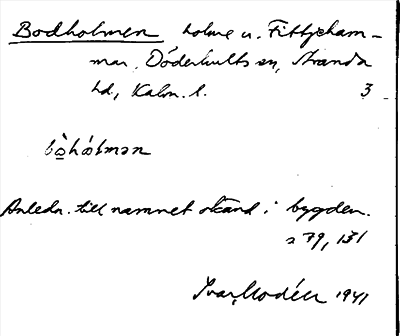 Bodholmen holme u. Fittjeham-
mar, Döderhults sn, Stranda
hd, Kalm. l. 3
bo̱̍hålmən
Anledn. till namnet okänd i bygden.
s 79, 131
Ivar Modéer 1941